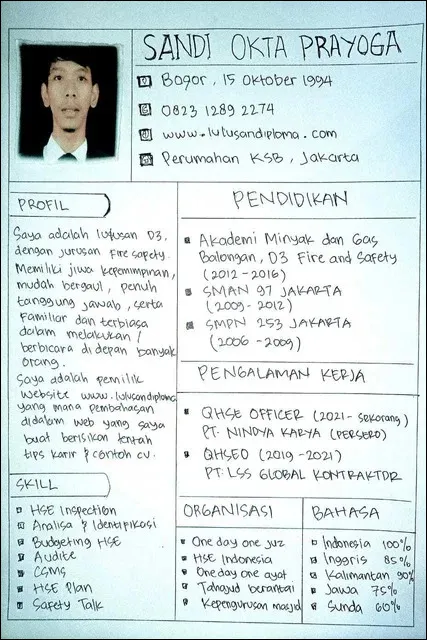 SANDI OKTA PRAYOGA
Bogor, 15 Oktober 1994
0823 1289 2274
www.lulusandiploma.com
Perumahan KSB, Jakarta
PROFIL
Saya adalah lulusan D3,
dengan jurusan Fire Safety.
Memiliki jiwa kepemimpinan,
mudah bergaul, penuh
tanggung jawab, serta
familiar dan terbiasa
dalam melakukan /
berbicara di depan banyak
orang.
Saya adalah pemilik
website www.lulusandiploma
yang mana pembahasan
didalam web yang saya
buat berisikan tentah
tips karir & contoh cv.
SKILL
HSE Inspection
Analisa & Identifikasi
Budgeting HSE
Audite
CSMS
HSE Plan
Safety Talk
PENDIDIKAN
Akademi Minyak dan Gas
Balongan, D3 Fire and Safety
(2012 - 2016)
SMAN 97 JAKARTA
(2009 - 2012)
SMPN 253 JAKARTA
(2006 - 2009)
PENGALAMAN KERJA
QHSE OFFICER (2021 - sekarang)
PT. NINDYA KARYA (PERSERO)
QHSEO (2019 - 2021)
PT. LSS GLOBAL KONTRAKTOR
ORGANISASI
One day one juz
HSE Indonesia
One day one ayat
Tahajud berantai
Kepengurusan masjid
BAHASA
Indonesia 100%
Inggris 85%
Kalimantan 90%
Jawa 75%
Sunda 60%